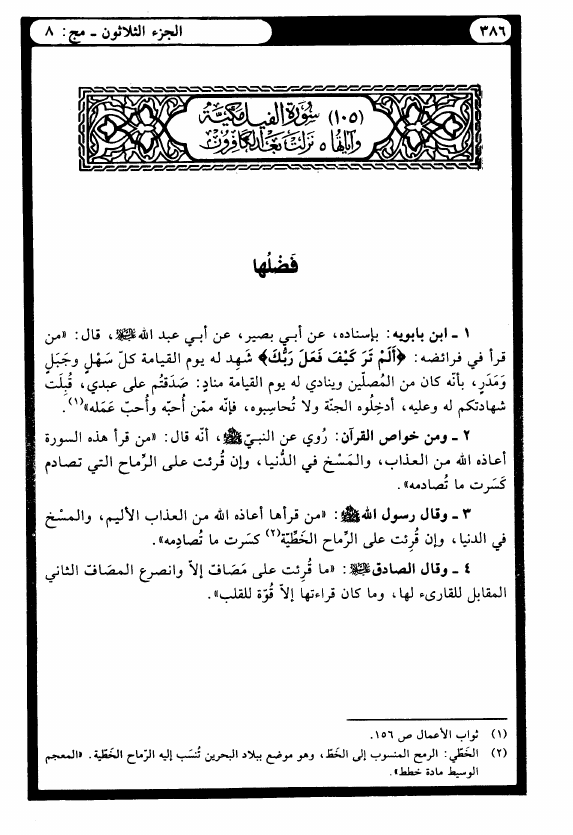 ٣٨٦
الجزء الثلاثون ـ مج: ٨
(١٠٥) سُورَةُ الفِيلِ مَكِّيَّة
وَآيَاتُهَا ٥ نَزَلَتْ بَعْدَ الكَافِرُون
فَضْلُها
١ ـ ابن بابويه: بإسناده، عن أبي بصير، عن أبي عبد الله عليه السلام، قال: «من
قرأ في فرائضه: ﴿أَلَمْ تَرَ كَيْفَ فَعَلَ رَبُّكَ﴾ شَهِد له يوم القيامة كلّ سَهْلٍ وجَبَلٍ
وَمَدَرٍ، بأنّه كان من المُصلّين وينادي له يوم القيامة منادٍ: صَدَقتُم على عبدي، قُبِلَت
شهادتكم له وعليه، أدخِلُوه الجنّة ولا تُحاسِبوه، فإنّه ممّن أُحبّه وأُحبّ عَمَله»(١).
٢ ـ ومن خواص القرآن: رُوي عن النبيّ ﷺ، أنّه قال: «من قرأ هذه السورة
أعاذه الله من العذاب، والمَسْخ في الدُّنيا، وإن قُرئت على الرِّماح التي تصادم
كَسَرت ما تُصادمه».
٣ ـ وقال رسول الله ﷺ: «من قرأها أعاذه الله من العذاب الأليم، والمسْخ
في الدنيا، وإن قُرئت على الرِّماح الخَطِّيّة(٢) كسَرت ما تُصادِمه».
٤ ـ وقال الصادق عليه السلام: «ما قُرِئت على مَصَافّ إلاّ وانصرع المصافّ الثاني
المقابل للقارىء لها، وما كان قراءتها إلاّ قُوّة للقلب».
(١) ثواب الأعمال ص ١٥٦.
(٢) الخَطّي: الرمح المنسوب إلى الخَطّ، وهو موضع ببلاد البحرين تُنسَب إليه الرِّماح الخَطّية. «المعجم
الوسيط مادة خطط».